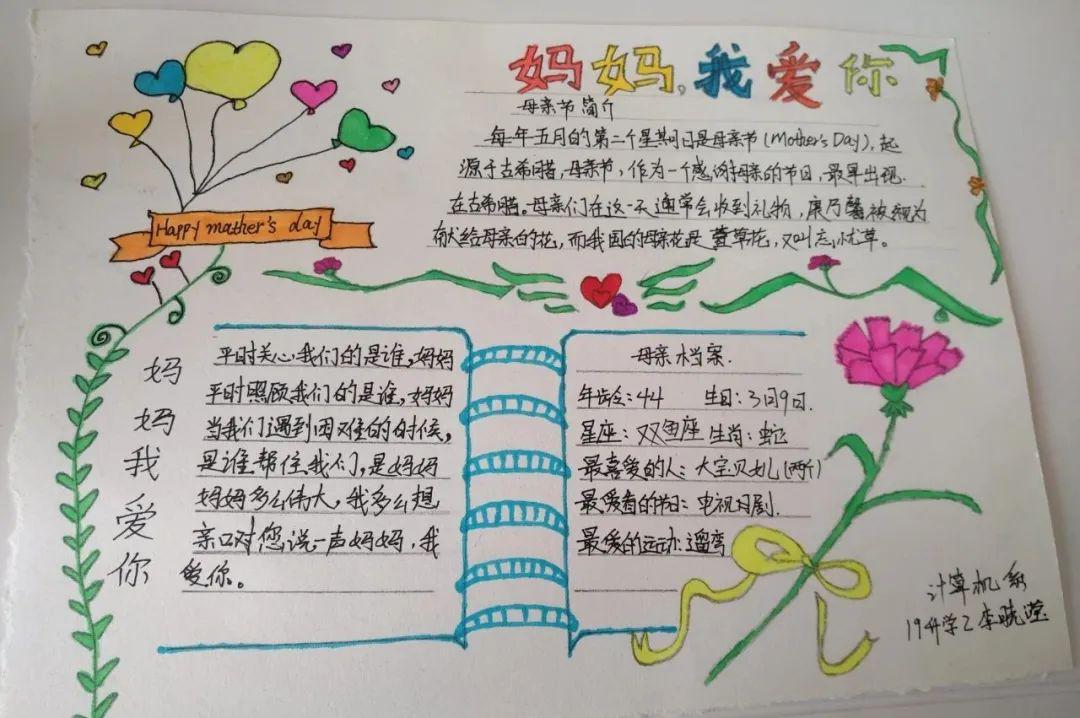 妈妈,我爱你
母亲节简介
每年五月的第二个星期日是母亲节(Mother's Day),起
源于古希腊,母亲节,作为一个感谢母亲的节日,最早出现
在古希腊。母亲们在这一天通常会收到礼物,康乃馨被视为
献给母亲的花,而我国的母亲花是萱草花,又叫忘忧草。
Happy mather's day
妈妈我爱你
平时关心我们的是谁,妈妈
平时照顾我们的是谁,妈妈
当我们遇到困难的时候,
是谁帮住我们,是妈妈
妈妈多么伟大,我多么想
亲口对您说一声妈妈,我
爱你。
母亲档案.
年龄:44 生日:3月9日.
星座:双鱼座 生肖:蛇
最喜爱的人:大宝贝儿(两个)
最爱看的节目:电视剧.
最爱的运动:遛弯
计算机系
19升学乙李晓滢